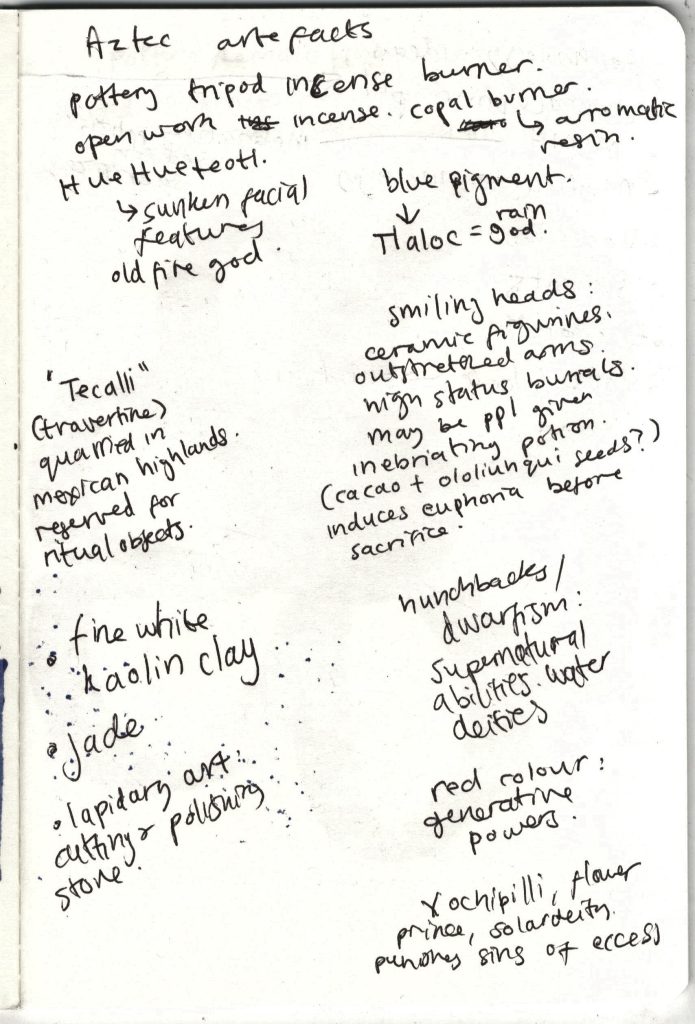 Aztec artefacts
pottery tripod incense burner.
open work incense. copal burner.
↳ arromatic
resin.
HueHueteotl.
↳ sunken facial
features
old fire god.
blue pigment.
↓
Tlaloc = rain
god.
"Tecalli"
(travertine)
quarried in
mexican highlands.
reserved for
ritual objects.
• fine white
kaolin clay
• jade
• lapidary art:
cutting & polishing
stone.
smiling heads:
ceramic figurines.
outstretched arms.
high status burials.
may be ppl given
inebriating potion.
(cacao + ololiuhqui seeds?)
induces euphoria before
sacrifice.
hunchbacks/
dwarfism:
supernatural
abilities. water
deities
red colour:
generative
powers.
Xochipilli, flower
prince, solar deity.
punishes sins of eccess